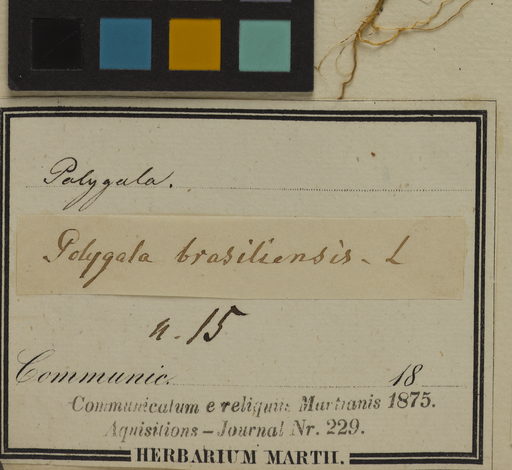 Polygala.
Polygala brasiliensis - L
n. 15
Communic. 18
Communicatum e reliquiis Martianis 1875.
Aquisitions-Journal Nr. 229.
HERBARIUM MARTII.